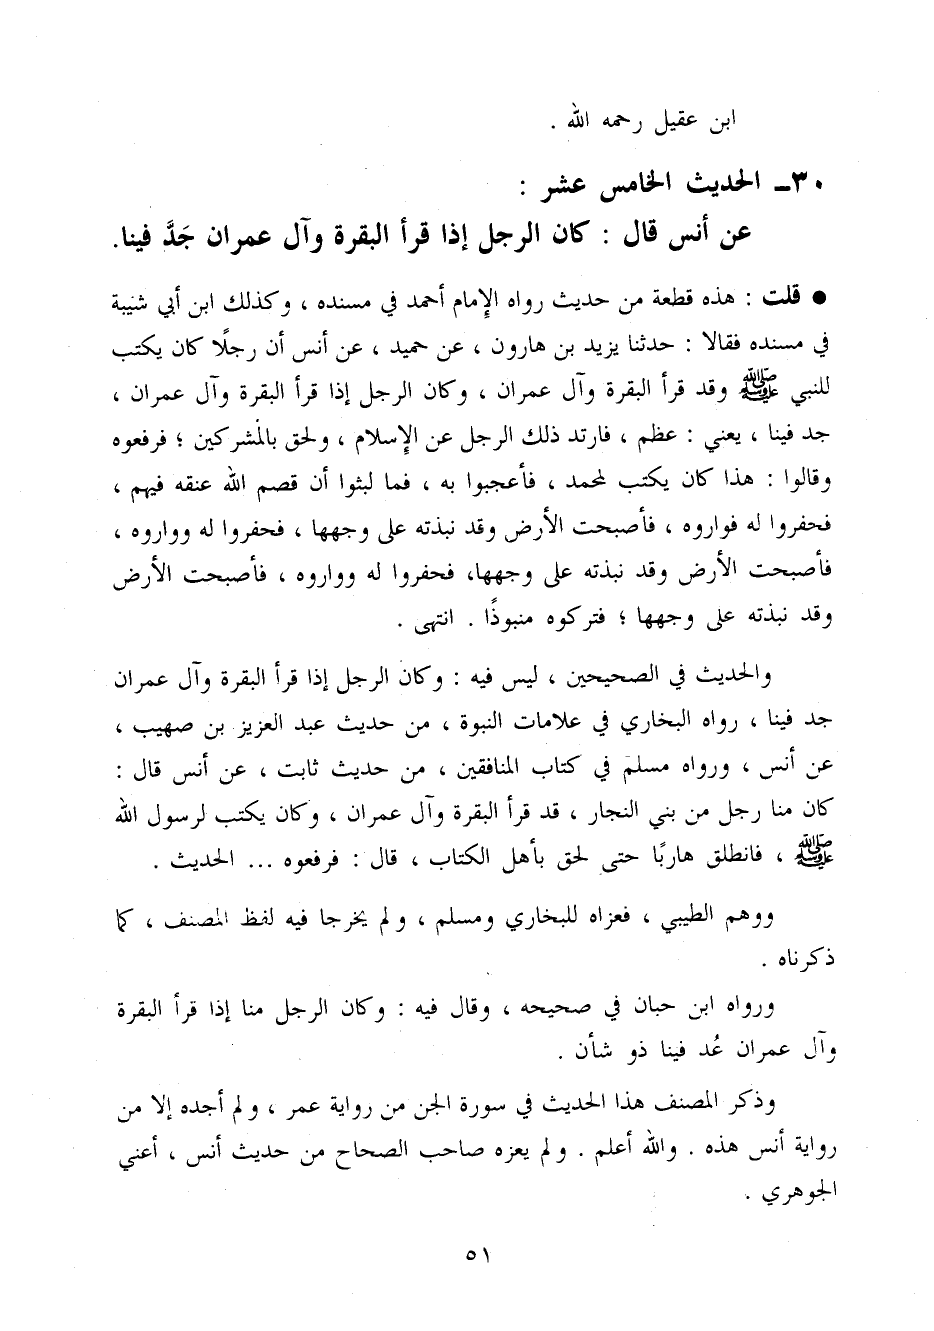 ابن عقيل رحمه الله .
٣٠ـ الحديث الخامس عشر :
عن أنس قال : كان الرجل إذا قرأ البقرة وآل عمران جَدَّ فينا.
● قلت : هذه قطعة من حديث رواه الإمام أحمد في مسنده ، وكذلك ابن أبي شيبة
في مسنده فقالا : حدثنا يزيد بن هارون ، عن حميد ، عن أنس أن رجلًا كان يكتب
للنبي ﷺ وقد قرأ البقرة وآل عمران ، وكان الرجل إذا قرأ البقرة وآل عمران ،
جد فينا ، يعني : عظم ، فارتد ذلك الرجل عن الإسلام ، ولحق بالمشركين ؛ فرفعوه
وقالوا : هذا كان يكتب لمحمد ، فأعجبوا به ، فما لبثوا أن قصم الله عنقه فيهم ،
فحفروا له فواروه ، فأصبحت الأرض وقد نبذته على وجهها ، فحفروا له وواروه ،
فأصبحت الأرض وقد نبذته على وجهها، فحفروا له وواروه ، فأصبحت الأرض
وقد نبذته على وجهها ؛ فتركوه منبوذًا . انتهى .
والحديث في الصحيحين ، ليس فيه : وكان الرجل إذا قرأ البقرة وآل عمران
جد فينا ، رواه البخاري في علامات النبوة ، من حديث عبد العزيز بن صهيب ،
عن أنس ، ورواه مسلم في كتاب المنافقين ، من حديث ثابت ، عن أنس قال :
كان منا رجل من بني النجار ، قد قرأ البقرة وآل عمران ، وكان يكتب لرسول الله
ﷺ ، فانطلق هاربًا حتى لحق بأهل الكتاب ، قال : فرفعوه ... الحديث .
ووهم الطيبي ، فعزاه للبخاري ومسلم ، ولم يخرجا فيه لفظ المصنف ، كما
ذكرناه .
ورواه ابن حبان في صحيحه ، وقال فيه : وكان الرجل منا إذا قرأ البقرة
وآل عمران عُد فينا ذو شأن .
وذكر المصنف هذا الحديث في سورة الجن من رواية عمر ، ولم أجده إلا من
رواية أنس هذه . والله أعلم . ولم يعزه صاحب الصحاح من حديث أنس ، أعني
الجوهري .
٥١